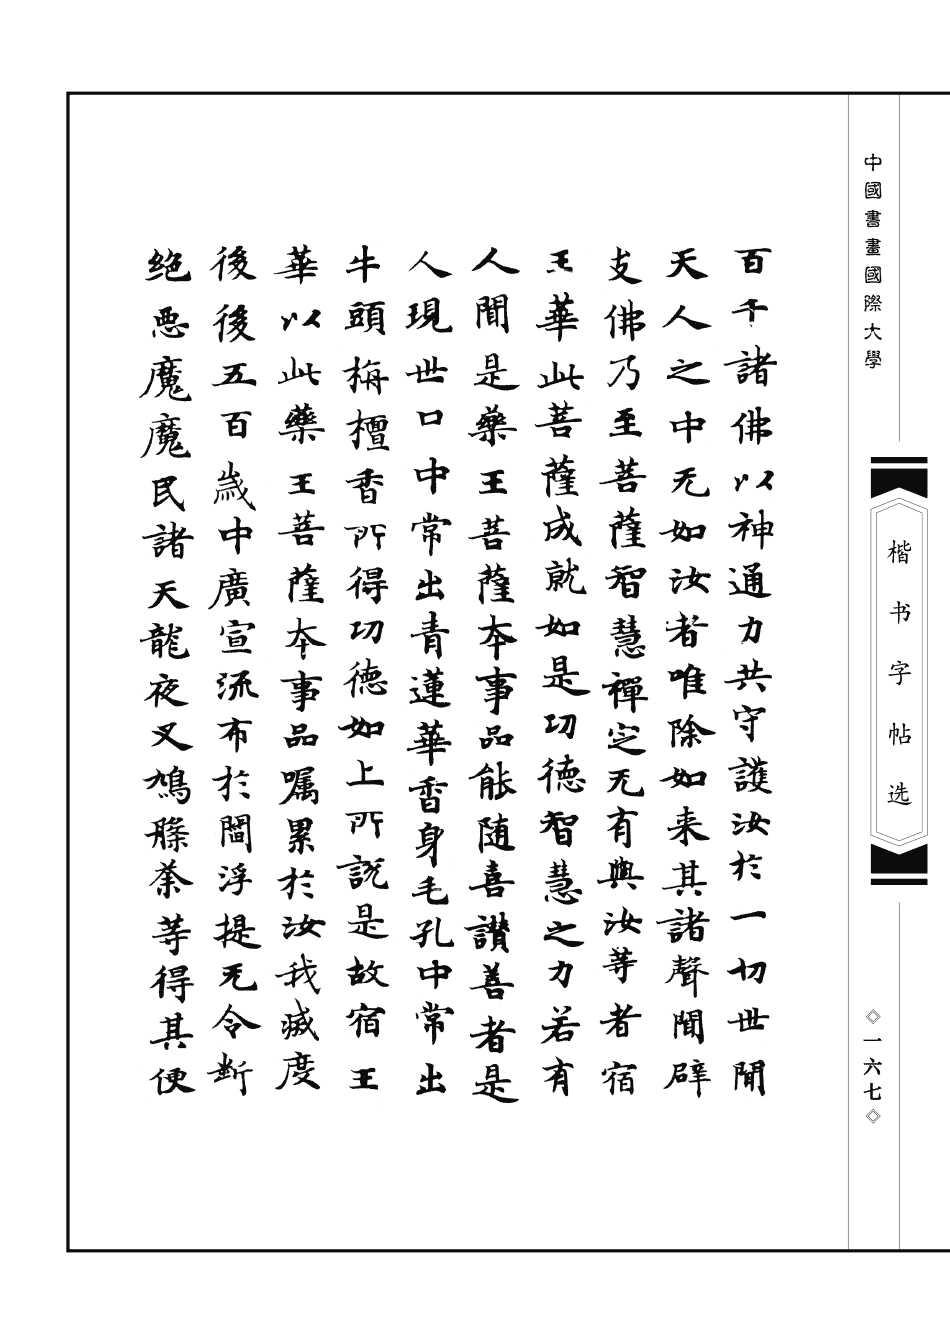 中國書畫國際大學
楷书字帖选
◇一六七◇
百千諸佛以神通力共守護汝於一切世間
天人之中无如汝者唯除如来其諸聲聞辟
支佛乃至菩薩智慧禪定无有與汝等者宿
王華此菩薩成就如是功德智慧之力若有
人聞是藥王菩薩本事品能随喜讃善者是
人現世口中常出青蓮華香身毛孔中常出
牛頭栴檀香所得功德如上所說是故宿王
華以此藥王菩薩本事品嘱累於汝我滅度
後後五百歲中廣宣流布於閻浮提无令断
绝惡魔魔民諸天龍夜叉鳩槃荼等得其便